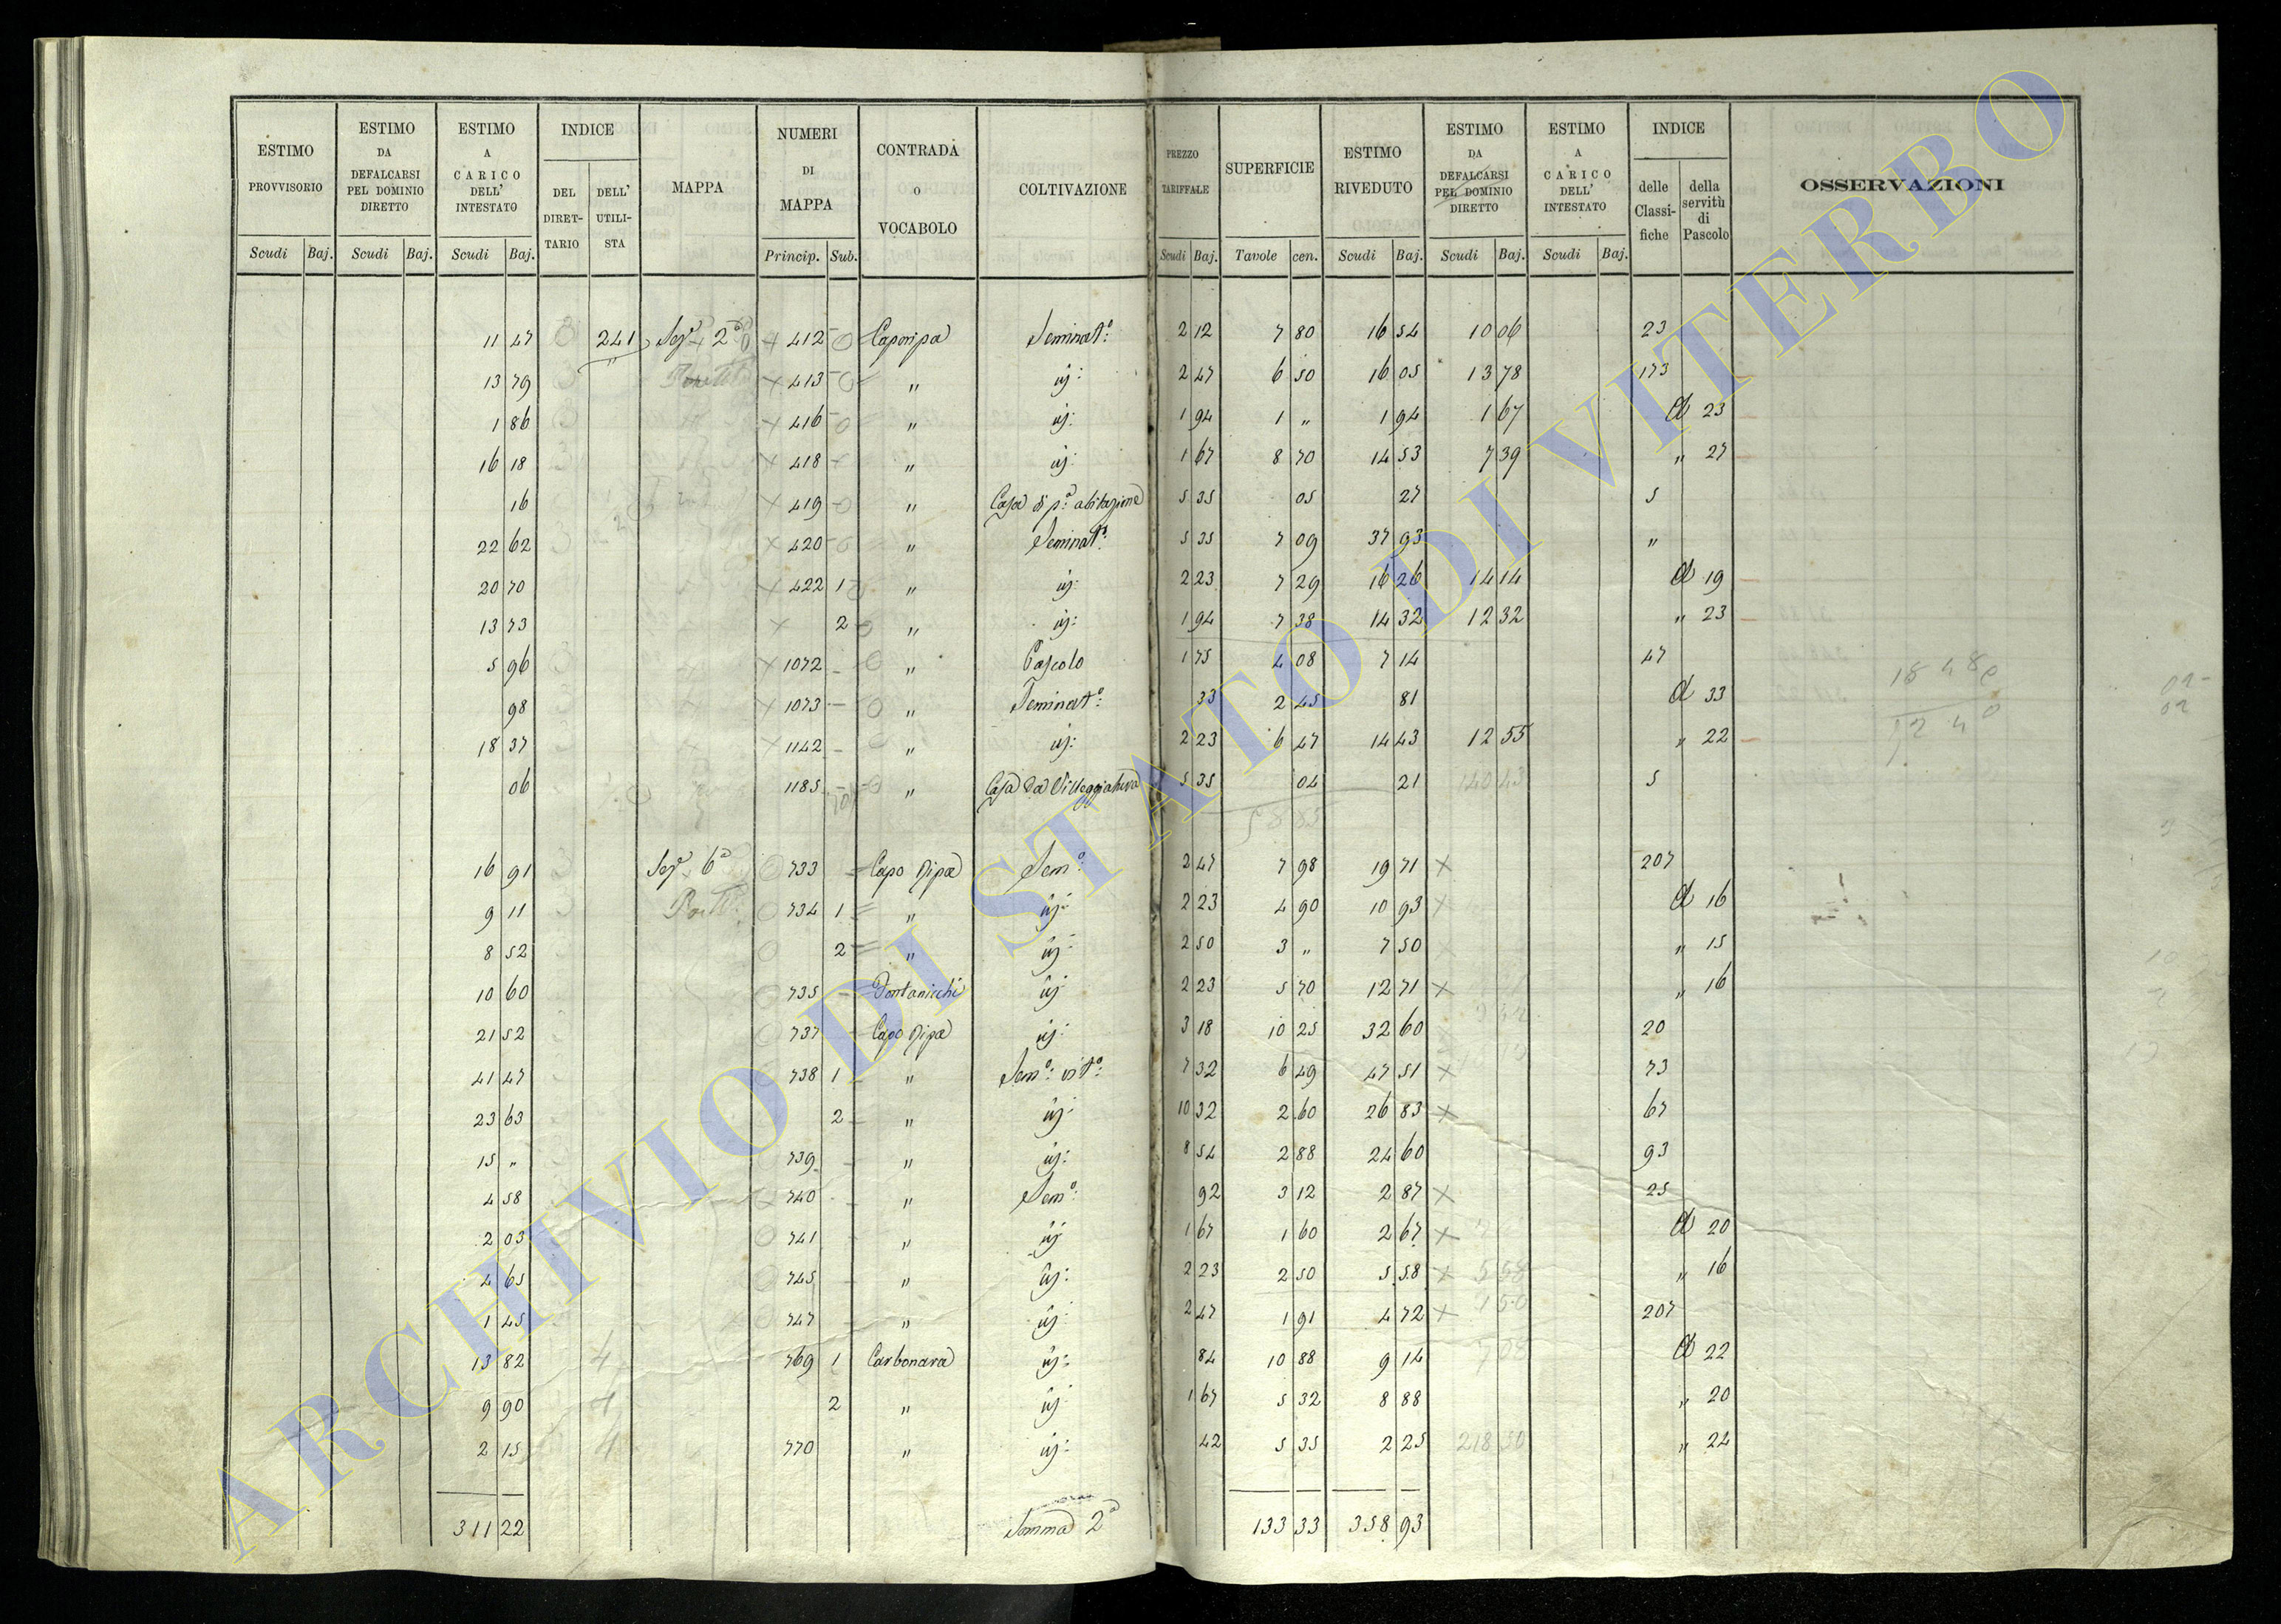 ESTIMO PROVVISORIO | ESTIMO DA DEFALCARSI PEL DOMINIO DIRETTO | ESTIMO A CARICO DELL' INTESTATO | INDICE DEL DIRETTARIO | DELL' UTILISTA | MAPPA | NUMERI DI MAPPA | CONTRADA O VOCABOLO | COLTIVAZIONE | PREZZO TARIFFALE | SUPERFICIE | ESTIMO RIVEDUTO | ESTIMO DA DEFALCARSI PEL DOMINIO DIRETTO | ESTIMO A CARICO DELL' INTESTATO | INDICE delle Classifiche | della servitù di Pascolo | OSSERVAZIONI
Scudi Baj. | Scudi Baj. | Scudi Baj. | Princip. Sub. | Scudi Baj. | Tavole cen. | Scudi Baj. | Scudi Baj. | Scudi Baj.
11 47 241 Sez.e 2a 412 Caporipa Seminat.o 2 12 7 80 16 54 10 06 23
13 79 " 413 " id: 2 47 6 50 16 05 13 78 173
1 86 416 " id: 1 94 1 " 1 94 1 67 d 23
16 18 418 " id: 1 67 8 70 14 53 7 39 " 27
16 419 " Casa di p.a abitazione 5 35 05 27 5
22 62 420 " Seminat.o 5 35 7 09 37 93 "
20 70 422 1 " id: 2 23 7 29 16 26 14 14 d 19
13 73 2 " id: 1 94 7 38 14 32 12 32 " 23
5 96 1072 " Pascolo 1 75 4 08 7 14 47
98 1073 " Seminat.o 33 2 45 81 d 33
18 37 1142 " id: 2 23 6 47 14 43 12 55 " 22
06 1185 " Casa da Villeggiatura 5 35 04 21 140 43 5
16 91 Sez.e 6a 733 Capo Ripa Sem.o 2 47 7 98 19 71 207
9 11 734 1 " id: 2 23 4 90 10 93 d 16
8 52 2 " id: 2 50 3 " 7 50 " 15
10 60 735 Fontanicchi id 2 23 5 70 12 71 " 16
21 52 737 Capo Ripa id: 3 18 10 25 32 60 20
41 47 738 1 " Sem.o: vit.o: 7 32 6 49 47 51 73
23 63 2 " id: 10 32 2 60 26 83 67
15 " 739 " id: 8 54 2 88 24 60 93
4 58 740 " Sem.o: 92 3 12 2 87 25
2 03 741 " id 1 67 1 60 2 67 d 20
4 65 745 " id: 2 23 2 50 5 58 5 58 " 16
1 45 747 " id: 2 47 1 91 4 72 207
13 82 4 769 1 Carbonara id: 84 10 88 9 14 d 22
9 90 4 2 " id 1 67 5 32 8 88 " 20
2 15 4 770 " id: 42 5 35 2 25 218 50 " 24
311 22 Somma 2a 133 33 358 93
ARCHIVIO DI STATO DI VITERBO